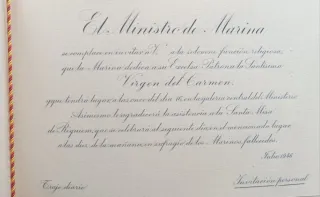 El Ministro de Marina
se complace en invitar a V. a la solemne función religiosa,
que la Marina dedica a su Excelsa Patrona la Santísima
Virgen del Carmen,
y que tendrá lugar a las once del día 16, en la galería central del Ministerio.
Asimismo le agradecerá la asistencia a la Santa Misa
de Requiem, que se celebrará al siguiente día en el mencionado lugar
a las diez de la mañana en sufragio de los Marinos fallecidos.
Julio 1946
Traje diario
Invitación personal